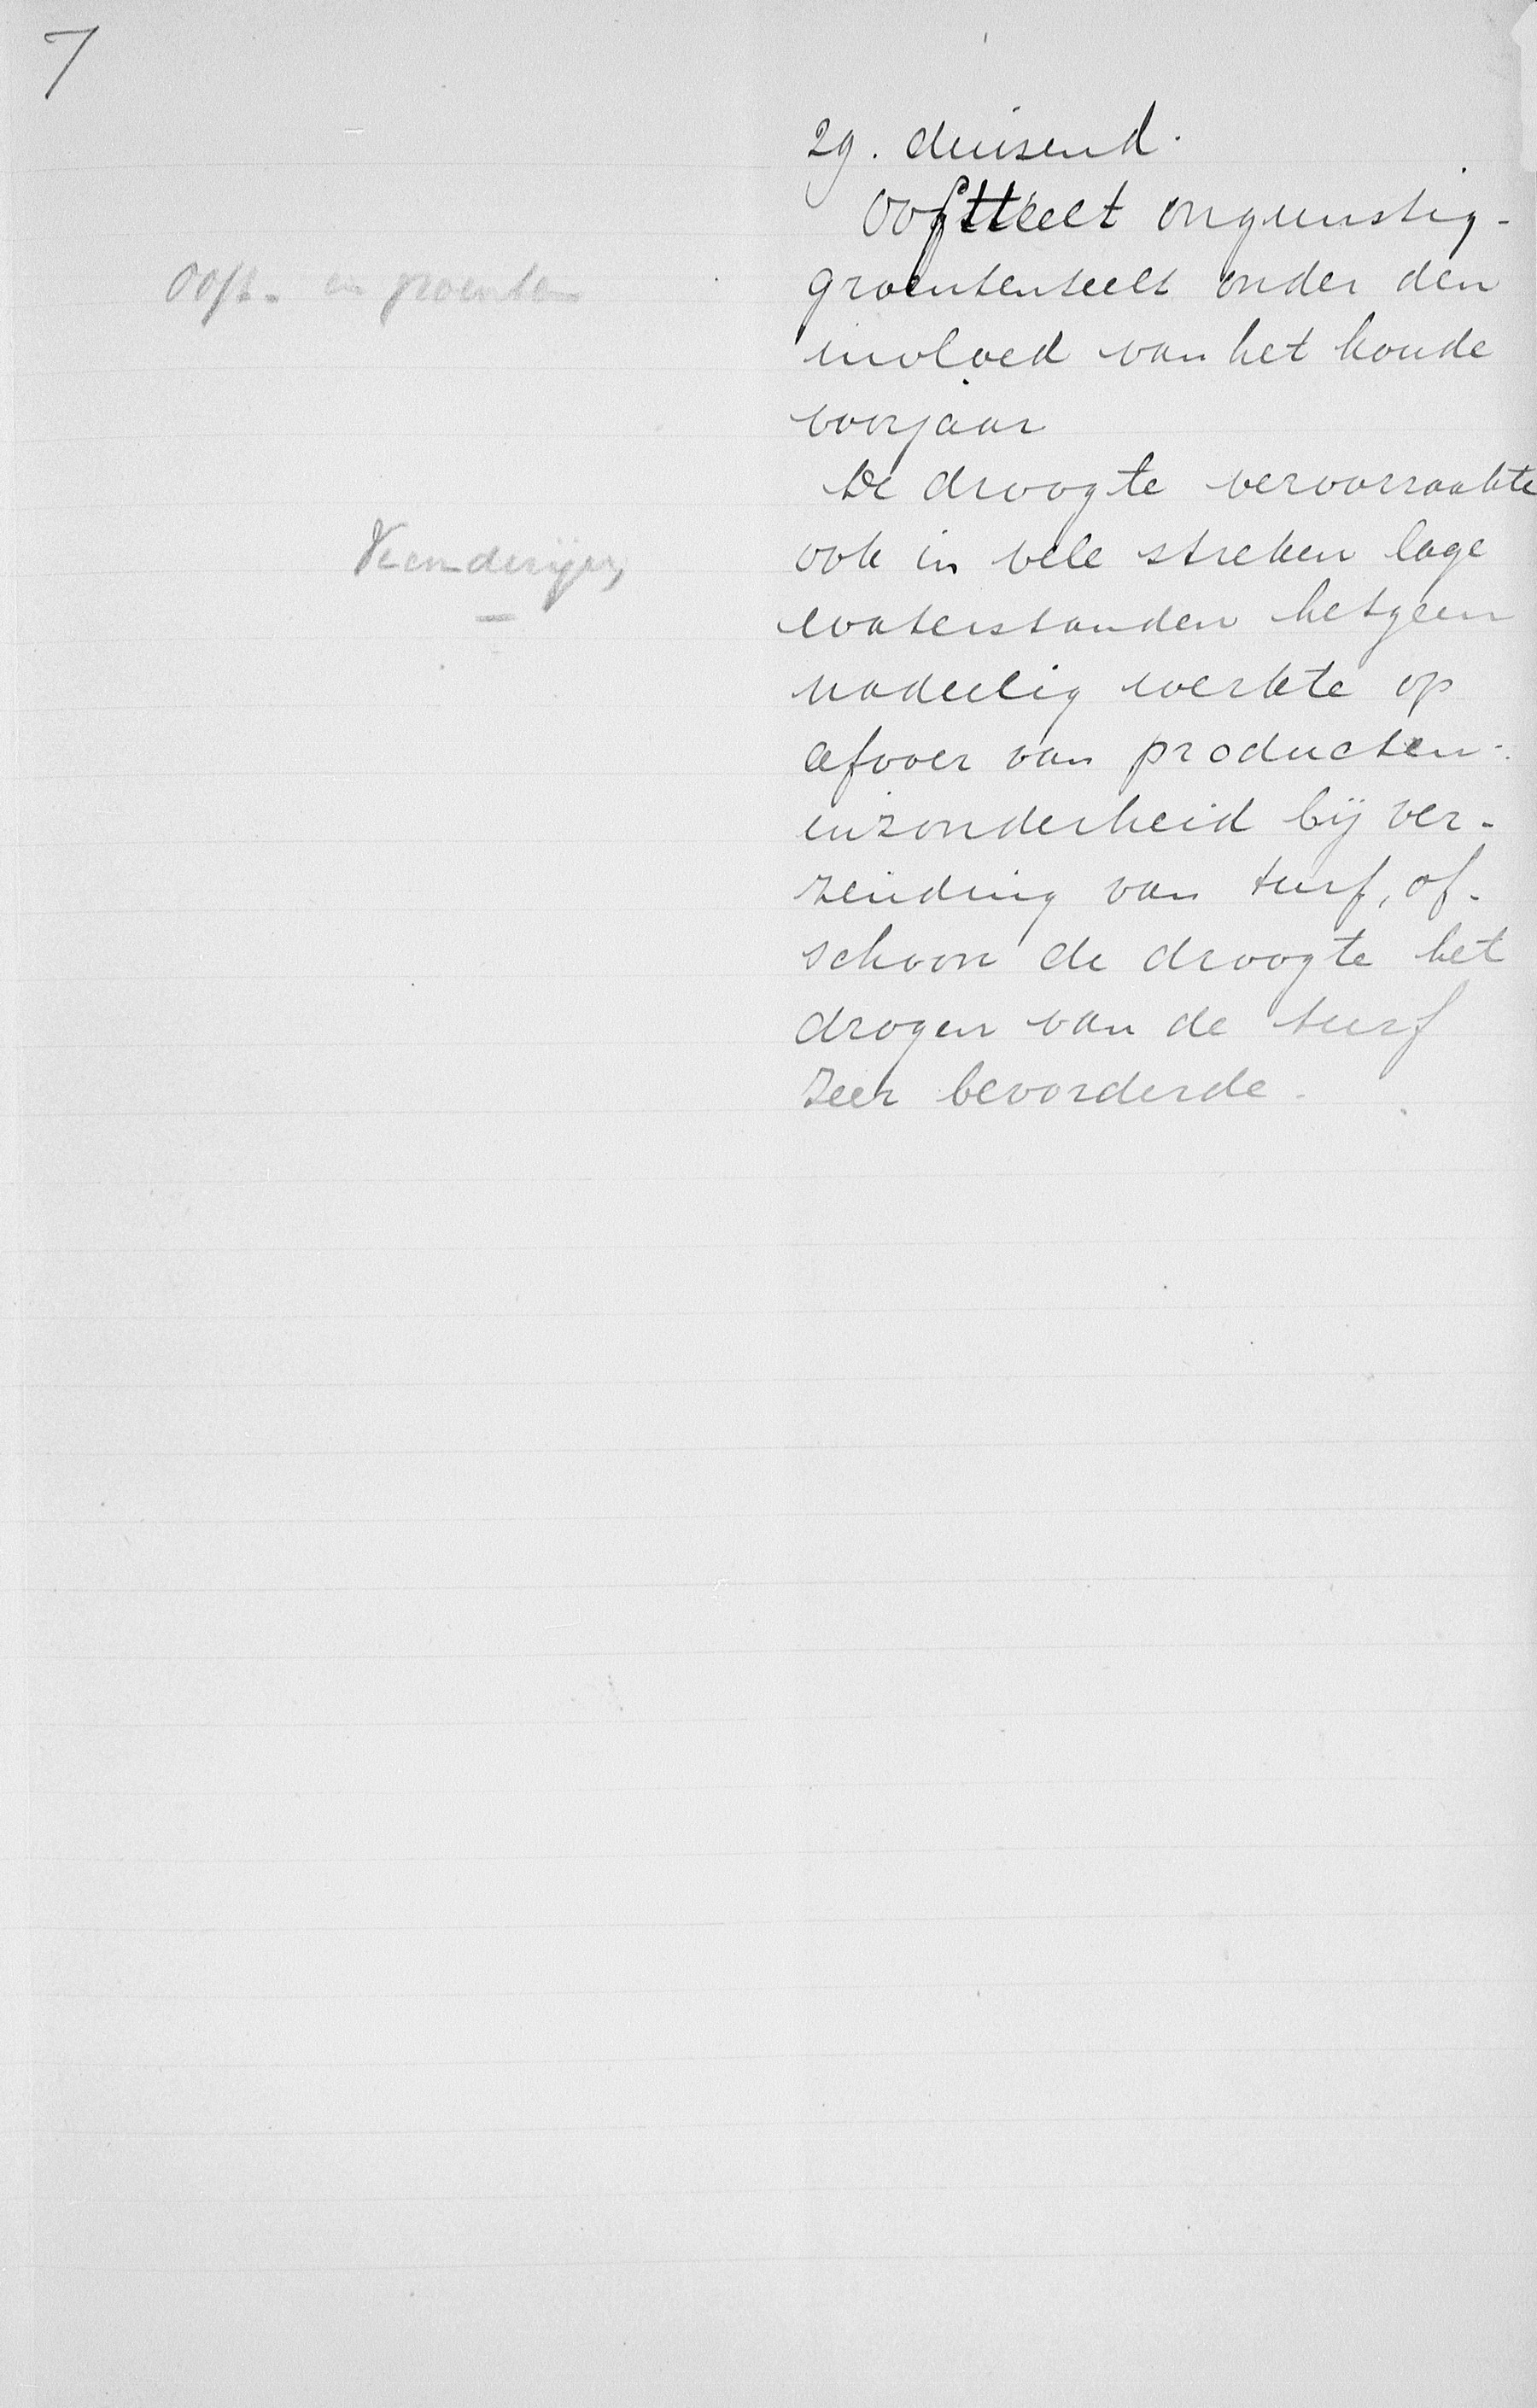 7
29. duisend.
Ooftteelt ongunstig-
Ooft- en groenten
groententeelt onder den
invloed van het koude
voorjaar
De droogte veroorzaakte
Veenderijen
ook in vele streken lage
waterstanden hetgeen
nadeelig werkte op
afvoer van producten.
inzonderheid bij ver-
zending van turf, of-
schoon de droogte het
drogen van de turf
zeer bevorderde.